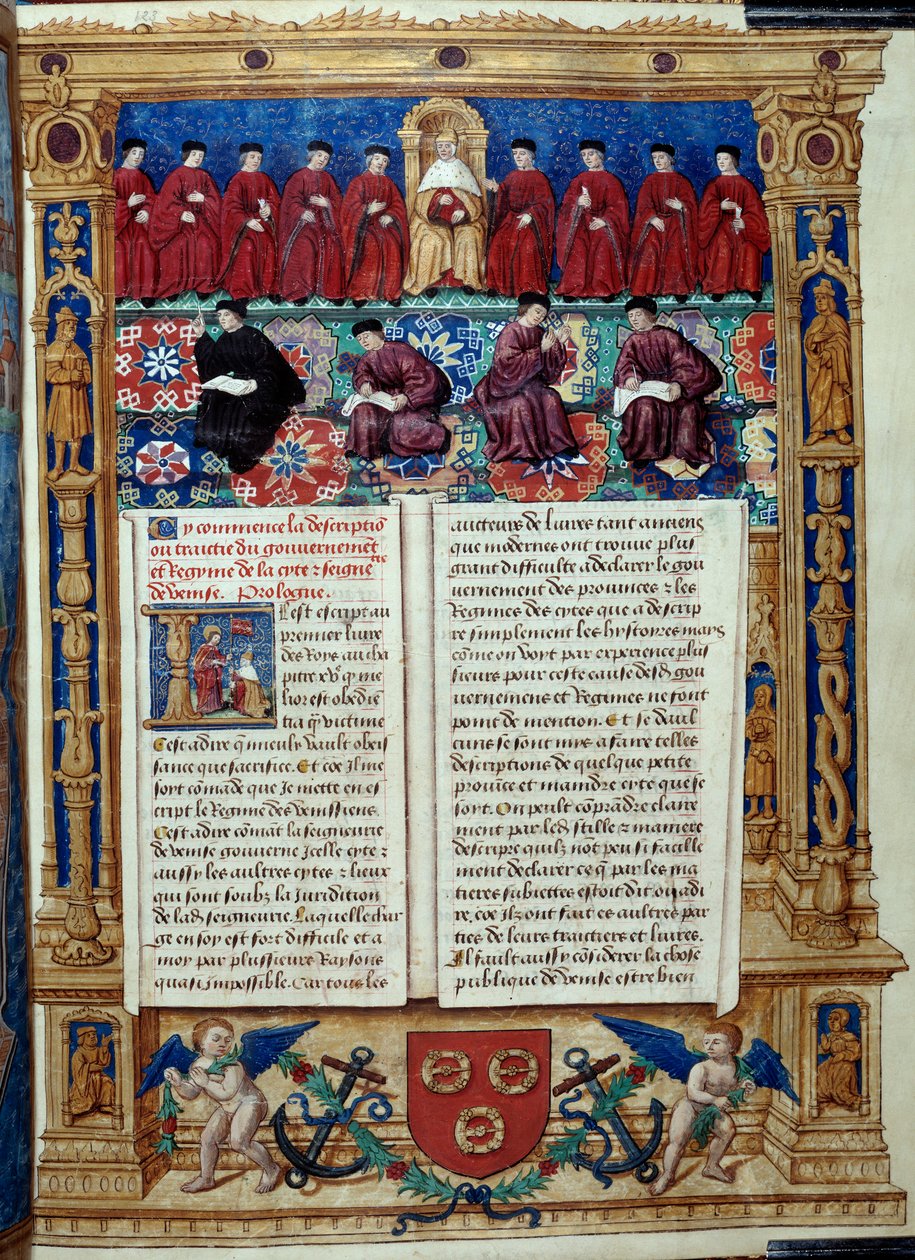 Cy commence la descriptiō
ou traictie du gouvernemēt
et Regyme de la cyte & seigne
rie
de venise. Prologue.
Il est escript au
premier livre
des Roys au cha
pitre xvͦ q̄ me
lior est obediē
tia q̄ȝ victime
Cest adire q̄ mieulx vault obeis
sance que sacrifice. Et cōe Il me
soyt cōmāde que Je mette en es
cript le Regime des venissiens
Cest adire cōmāt la seigneurie
de venise gouverne Jcelle cyte &
aussy les aultres cytes & lieux
qui sont soubz la Jurdition
de lad̄ seigneurie. Laquelle char
ge en soy est fort difficile et a
moy par plussieurs Raysons
quasi jmpossible. Car tous les
aucteurs de livres tant anciens
que modernes ont trouve plus
grant difficulte a declarer le gou
vernement des provinces & les
Regimes des cytes que a descrip
re simplement les hystoires mays
cōme on voyt par experience plus
sieurs pour ceste cause desd̄ gou
vernemens et Regimes ne font
point de mention. Et se daul
cuns se sont mys a faire telles
descriptions de quelque petite
province et maindre cyte que se
soyt. On peult cōprādre claire
ment par led̄ stille & maniere
descripre quilz not peu si facille
ment declarer ce q̄ par les ma
tieres subiettes estoit dit ou adi
re, cōe ilz ont fait es aultres par
ties de leurs traictiers et livres.
Il fault aussy cōsiderer la chose
publique de venise estre bien